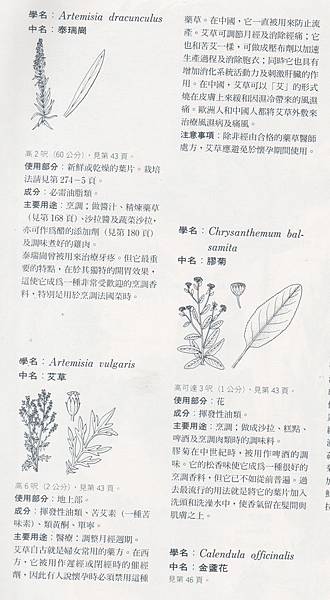 學名：Artemisia dracunculus
中名：泰瑞崗
高2呎（60公分），見第43頁。
使用部分：新鮮或乾燥的葉片。栽培
法請見第274－5頁。
成分：必需油脂類。
主要用途：烹調；做醬汁、精煉藥草
（見第168頁）、沙拉醬及蔬菜沙拉，
亦可作為醋的添加劑（見第180頁）
及調味煮好的雞肉。
泰瑞崗曾被用來治療牙疼。但它最重
要的特點，在於其獨特的開胃效果，
這使它成為一種非常受歡迎的烹調香
料，特別是用於烹調法國菜時。
學名：Artemisia vulgaris
中名：艾草
高6呎（2公分），見第43頁。
使用部分：地上部。
成分：揮發性油類、苦艾素（一種苦
味素）、類黃酮、單寧。
主要用途：醫療；調整月經週期。
艾草自古就是婦女常用的藥方。在西
方，它被用作遲經或閉經時的催經
劑，因此有人說懷孕時必須禁用這種
藥草。在中國，它一直被用來防止流
產。艾草可調節月經及消除經痛；它
也和苦艾一樣，可做成壓布劑以加速
生產過程及消除胞衣；同時它也具有
增加消化系統活動力及刺激肝臟的作
用。在中國，艾草可以「艾」的形式
燒在皮膚上來緩和因濕冷帶來的風濕
痛。歐洲人和中國人都將艾草外敷來
治療風濕病及痛風。
注意事項：除非經由合格的藥草醫師
處方，艾草應避免於懷孕期間使用。
學名：Chrysanthemum bal-
samita
中名：膠菊
高可達3呎（1公分），見第43頁。
使用部分：花
成分：揮發性油類。
主要用途：烹調；做成沙拉、糕點、
啤酒及烹調肉類時的調味料。
膠菊在中世紀時，被用作啤酒的調
味。它的松香味使它成為一種很好的
烹調香料，但它已不如從前普遍。過
去最流行的用法就是將它的葉片加入
洗頭和洗澡水中，使香氣留在髮間與
肌膚之上。
學名：Calendula officinalis
中名：金盞花
見第46頁。